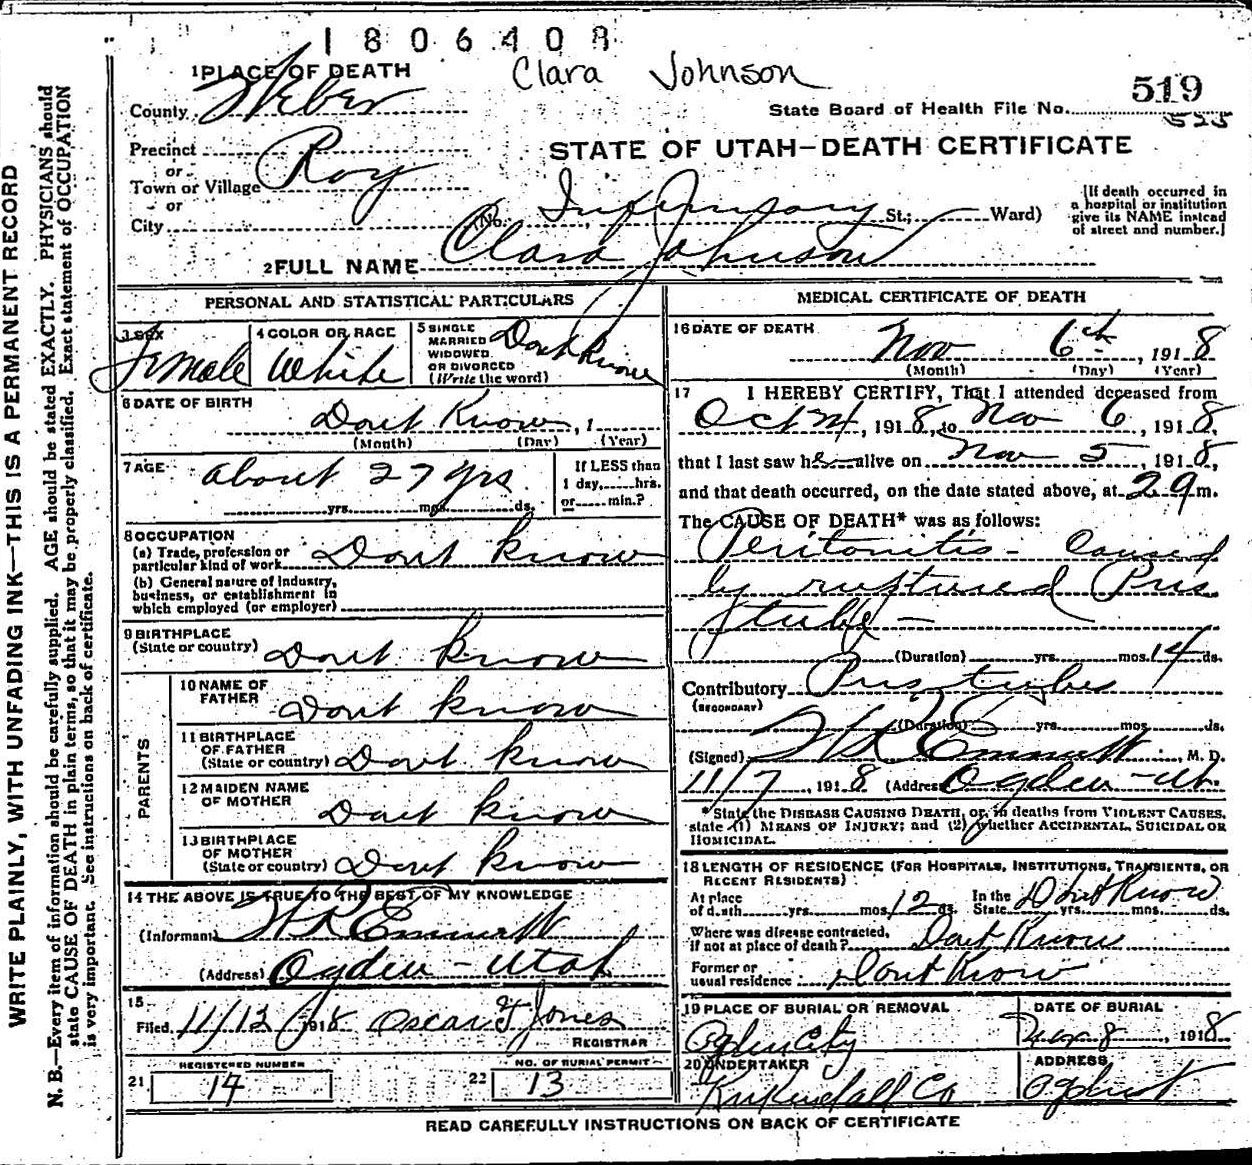 1806408
Clara Johnson
1 PLACE OF DEATH
519
County Weber
State Board of Health File No.
Precinct
STATE OF UTAH—DEATH CERTIFICATE
or
Town or Village Roy
or
City (No. Infirmary St.; Ward)
(If death occurred in
a hospital or institution
give its NAME instead
of street and number.)
2 FULL NAME Clara Johnson
PERSONAL AND STATISTICAL PARTICULARS
3 SEX Female
4 COLOR OR RACE White
5 SINGLE
MARRIED
WIDOWED
OR DIVORCED
(Write the word) Dont Know
6 DATE OF BIRTH
Dont Know, 1
(Month) (Day) (Year)
7 AGE about 27 yrs
yrs. mos. ds.
If LESS than
1 day, hrs.
or min.?
8 OCCUPATION
(a) Trade, profession or
particular kind of work Dont Know
(b) General nature of industry,
business, or establishment in
which employed (or employer)
9 BIRTHPLACE
(State or country) Dont Know
PARENTS
10 NAME OF
FATHER Dont Know
11 BIRTHPLACE
OF FATHER
(State or country) Dont Know
12 MAIDEN NAME
OF MOTHER Dont Know
13 BIRTHPLACE
OF MOTHER
(State or country) Dont Know
14 THE ABOVE IS TRUE TO THE BEST OF MY KNOWLEDGE
(Informant) Emmett
(Address) Ogden - Utah
15
Filed 11/12 1918 Oscar F Jones
REGISTRAR
21 REGISTERED NUMBER 14
22 NO. OF BURIAL PERMIT 13
MEDICAL CERTIFICATE OF DEATH
16 DATE OF DEATH
Nov 6th, 1918
(Month) (Day) (Year)
17 I HEREBY CERTIFY, That I attended deceased from
Oct 24, 1918, to Nov 6, 1918,
that I last saw her alive on Nov 5, 1918,
and that death occurred, on the date stated above, at 2 a m.
The CAUSE OF DEATH* was as follows:
Peritonitis - Caused
by ruptured Pus
tube -
(Duration) yrs. mos. 14 ds.
Contributory Pus tubes
(SECONDARY)
(Duration) yrs. mos. ds.
(Signed) Emmett M. D.
11/7, 1918 (Address) Ogden - Ut.
*State the DISEASE CAUSING DEATH, or, in deaths from VIOLENT CAUSES,
state (1) MEANS OF INJURY; and (2) whether ACCIDENTAL, SUICIDAL OR
HOMICIDAL.
18 LENGTH OF RESIDENCE (FOR HOSPITALS, INSTITUTIONS, TRANSIENTS, OR
RECENT RESIDENTS)
At place
of death yrs. mos. 12 ds.
In the
State Dont Know yrs. ds.
Where was disease contracted,
if not at place of death? Dont Know
Former or
usual residence Dont Know
19 PLACE OF BURIAL OR REMOVAL
Ogden City
DATE OF BURIAL
8, 1918
20 UNDERTAKER
Kirkendall Co
ADDRESS
READ CAREFULLY INSTRUCTIONS ON BACK OF CERTIFICATE
WRITE PLAINLY, WITH UNFADING INK—THIS IS A PERMANENT RECORD
N. B.—Every item of information should be carefully supplied. AGE should be stated EXACTLY. PHYSICIANS should
state CAUSE OF DEATH in plain terms, so that it may be properly classified. Exact statement of OCCUPATION
is very important. See instructions on back of certificate.